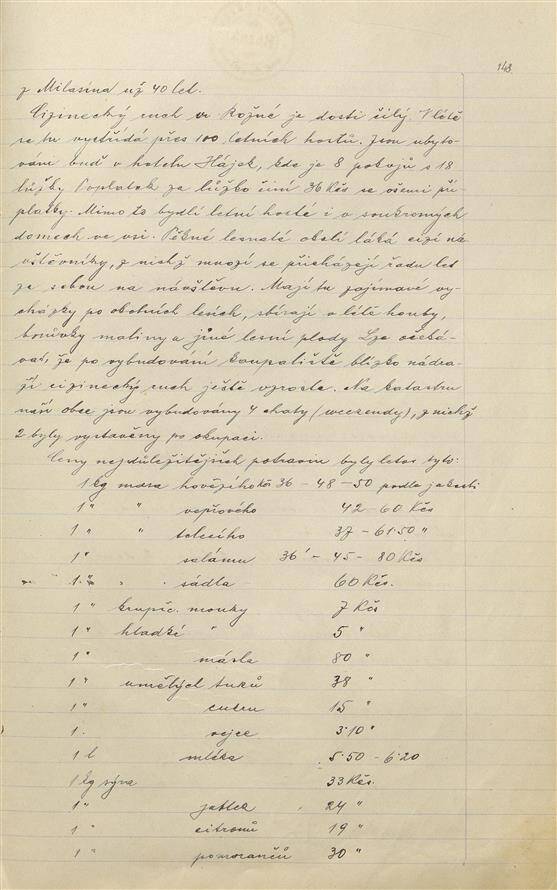 148.
z Milasína už 40 let.
Cizinecký ruch ve Kožné je dosti čilý. V létě
se tu vystřídá přes 100 letních hostů. Jsou ubyto-
váni buď v hotelu Hájek, kde je 8 pokojů s 18
lůžky. Poplatek za lůžko činí 36 Kčs se všemi pří-
platky. Mimo to bydlí letní hosté i v soukromých
domech ve vsi. Pěkné lesnaté okolí láká cizí ná
vštěvníky, z nichž mnozí se přicházejí řadu let
ze sebou na návštěvu. Mají tu zajímavé vy-
cházky po okolních lesích, sbírají v létě houby,
borůvky maliny a jiné lesní plody. Lze očeká-
vat, že po vybudování koupaliště blízko nádra-
ží cizinecký ruch ještě vzroste. Na katastru
naší obce jsou vybudovány 4 chaty (weekendy), z nichž
2 byly vystavěny po okupaci.
Ceny nejdůležitějších potravin byly letos tyto:
1 kg masa hovězího Kčs 36 - 48 - 50 podle jakosti
1 " " vepřového 42 - 60 Kčs
1 " " telecího 37 - 61·50 "
1 " salámu 36 - 45 - 80 Kčs
1 " sádla 60 Kčs.
1 " krupic. mouky 7 Kčs
1 " hladké " 5 "
1 " másla 80 "
1 " umělých tuků 38 "
1 " cukru 15 "
1 . vejce 3·10 "
1 l mléka 5·50 - 6·20
1 kg sýra 33 Kčs.
1 " jablek 24 "
1 " citronů 19 "
1 " pomorančů 30 "